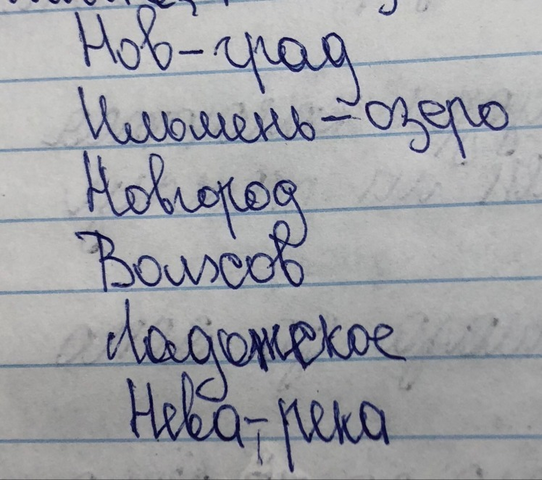 Нов-град
Ильмень-озеро
Новгород
Волхов
Ладожское
Нева-река